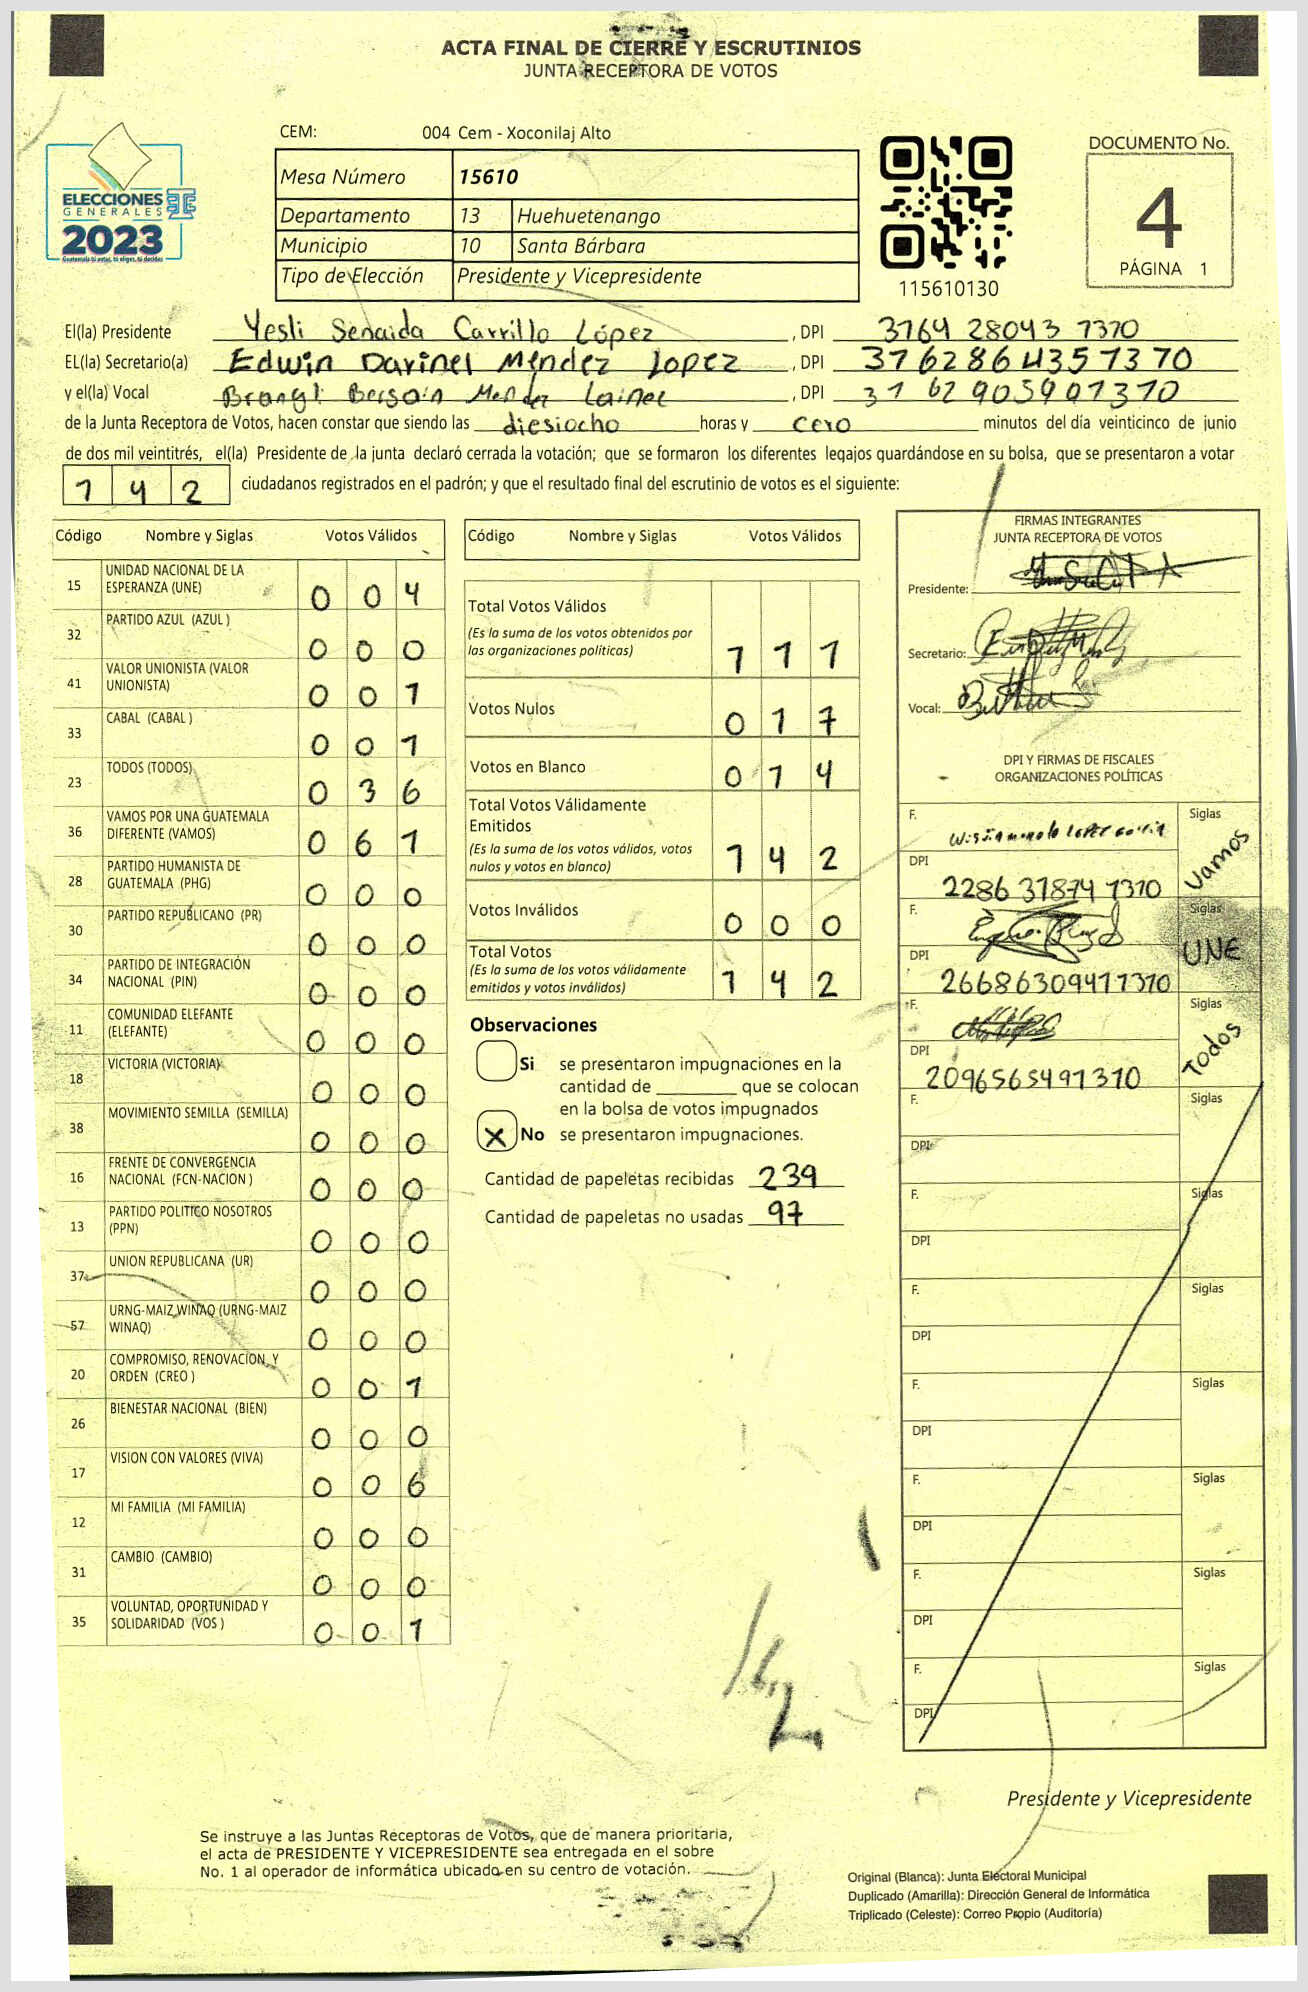 ACTA FINAL DE CIERRE Y ESCRUTINIOS
JUNTA RECEPTORA DE VOTOS
CEM: 004 Cem - Xoconilaj Alto
ELECCIONES
GENERALES
2023
Mesa Número 15610
Departamento 13 Huehuetenango
Municipio 10 Santa Bárbara
Tipo de Elección Presidente y Vicepresidente
115610130
DOCUMENTO No.
4
PÁGINA 1
El(la) Presidente Yesli Senaida Carrillo López, DPI 3764 28043 1310
EL(la) Secretario(a) Edwin Darinel Méndez Lopez, DPI 3762864357370
y el(la) Vocal Mendez Lainez, DPI 3762905901370
de la Junta Receptora de Votos, hacen constar que siendo las diesiocho horas y cero minutos del día veinticinco de junio
de dos mil veintitrés, el(la) Presidente de la junta declaró cerrada la votación; que se formaron los diferentes legajos guardándose en su bolsa, que se presentaron a votar
142 ciudadanos registrados en el padrón; y que el resultado final del escrutinio de votos es el siguiente:
Código Nombre y Siglas Votos Válidos
15 UNIDAD NACIONAL DE LA ESPERANZA (UNE) 0 0 4
32 PARTIDO AZUL (AZUL ) 0 0 0
41 VALOR UNIONISTA (VALOR UNIONISTA) 0 0 1
33 CABAL (CABAL ) 0 0 1
23 TODOS (TODOS) 0 3 6
36 VAMOS POR UNA GUATEMALA DIFERENTE (VAMOS) 0 6 1
28 PARTIDO HUMANISTA DE GUATEMALA (PHG) 0 0 0
30 PARTIDO REPUBLICANO (PR) 0 0 0
34 PARTIDO DE INTEGRACIÓN NACIONAL (PIN) 0 0 0
11 COMUNIDAD ELEFANTE (ELEFANTE) 0 0 0
18 VICTORIA (VICTORIA) 0 0 0
38 MOVIMIENTO SEMILLA (SEMILLA) 0 0 0
16 FRENTE DE CONVERGENCIA NACIONAL (FCN-NACION ) 0 0 0
13 PARTIDO POLITICO NOSOTROS (PPN) 0 0 0
37 UNION REPUBLICANA (UR) 0 0 0
57 URNG-MAIZ WINAQ (URNG-MAIZ WINAQ) 0 0 0
20 COMPROMISO, RENOVACION, Y ORDEN (CREO ) 0 0 1
26 BIENESTAR NACIONAL (BIEN) 0 0 0
17 VISION CON VALORES (VIVA) 0 0 6
12 MI FAMILIA (MI FAMILIA) 0 0 0
31 CAMBIO (CAMBIO) 0 0 0
35 VOLUNTAD, OPORTUNIDAD Y SOLIDARIDAD (VOS ) 0 0 1
Código Nombre y Siglas Votos Válidos
Total Votos Válidos
(Es la suma de los votos obtenidos por
las organizaciones políticas) 1 1 1
Votos Nulos 0 1 7
Votos en Blanco 0 1 4
Total Votos Válidamente
Emitidos
(Es la suma de los votos válidos, votos
nulos y votos en blanco) 1 4 2
Votos Inválidos 0 0 0
Total Votos
(Es la suma de los votos válidamente
emitidos y votos inválidos) 1 4 2
Observaciones
Si se presentaron impugnaciones en la
cantidad de ________ que se colocan
en la bolsa de votos impugnados
X No se presentaron impugnaciones.
Cantidad de papeletas recibidas 239
Cantidad de papeletas no usadas 97
FIRMAS INTEGRANTES
JUNTA RECEPTORA DE VOTOS
Presidente:
Secretario:
Vocal:
DPI Y FIRMAS DE FISCALES
ORGANIZACIONES POLÍTICAS
F. Siglas Vamos
DPI 2286 31874 1310
F. Siglas UNE
DPI 2668630941 1310
F. Siglas Todos
DPI 2096565491310
F. Siglas
DPI
F. Siglas
DPI
F. Siglas
DPI
F. Siglas
DPI
F. Siglas
DPI
F. Siglas
DPI
F. Siglas
DPI
Presidente y Vicepresidente
Se instruye a las Juntas Receptoras de Votos, que de manera prioritaria,
el acta de PRESIDENTE Y VICEPRESIDENTE sea entregada en el sobre
No. 1 al operador de informática ubicado en su centro de votación.
Original (Blanca): Junta Electoral Municipal
Duplicado (Amarilla): Dirección General de Informática
Triplicado (Celeste): Correo Propio (Auditoría)